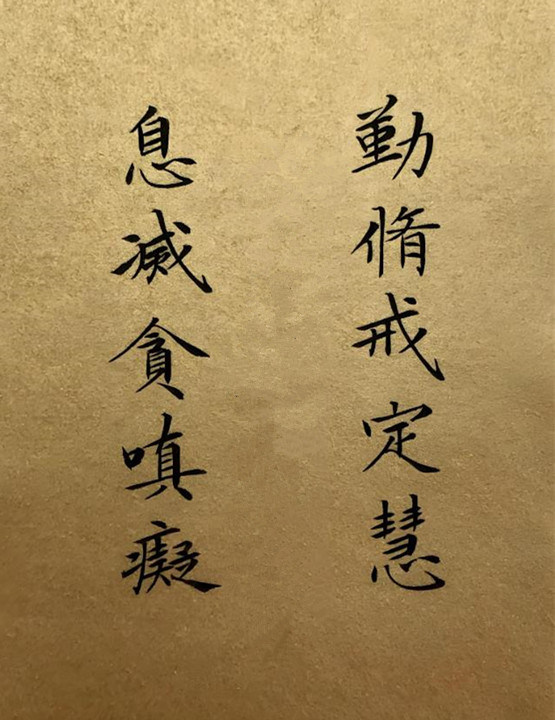 勤脩戒定慧
息滅貪嗔癡